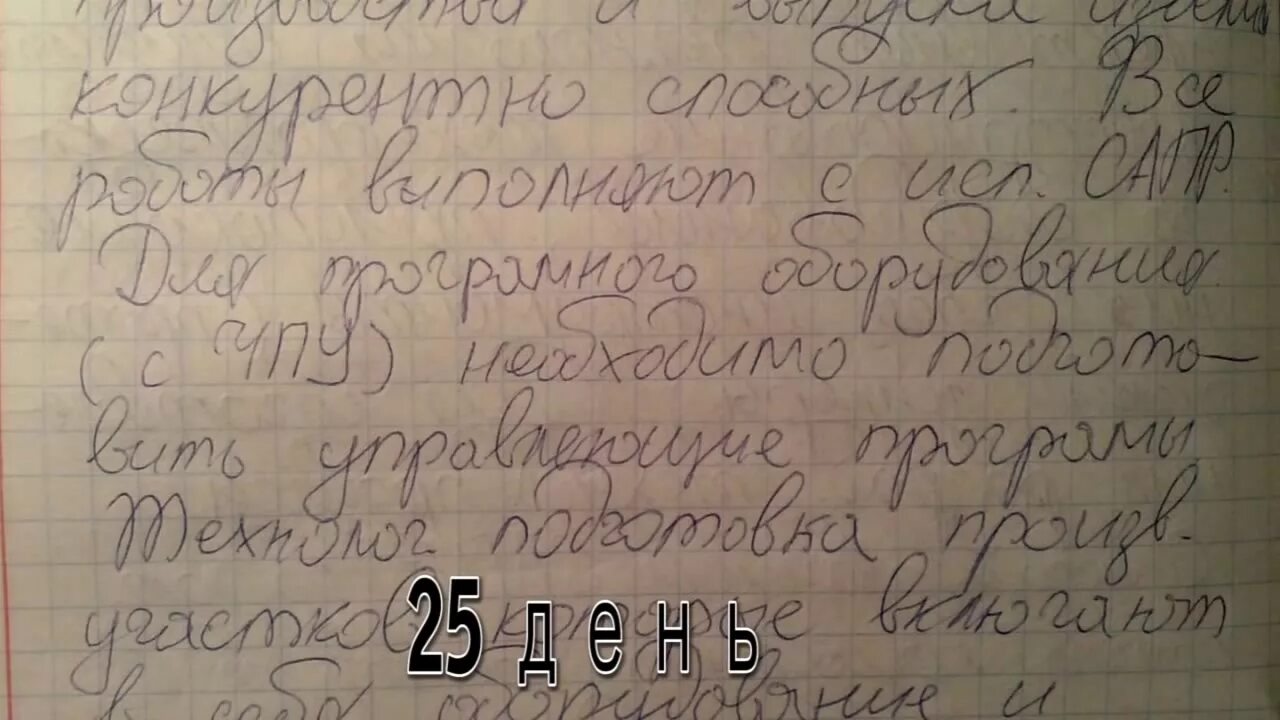 производства и выпуска
конкурентно способных. Все
роботы выполняют с исп. САПР.
Для програмного оборудования
(с ЧПУ) необходимо подгото-
вить управляющие програмы
Технолог. подготовка произв.
участков которые включают
25 день
в себя оборудование и